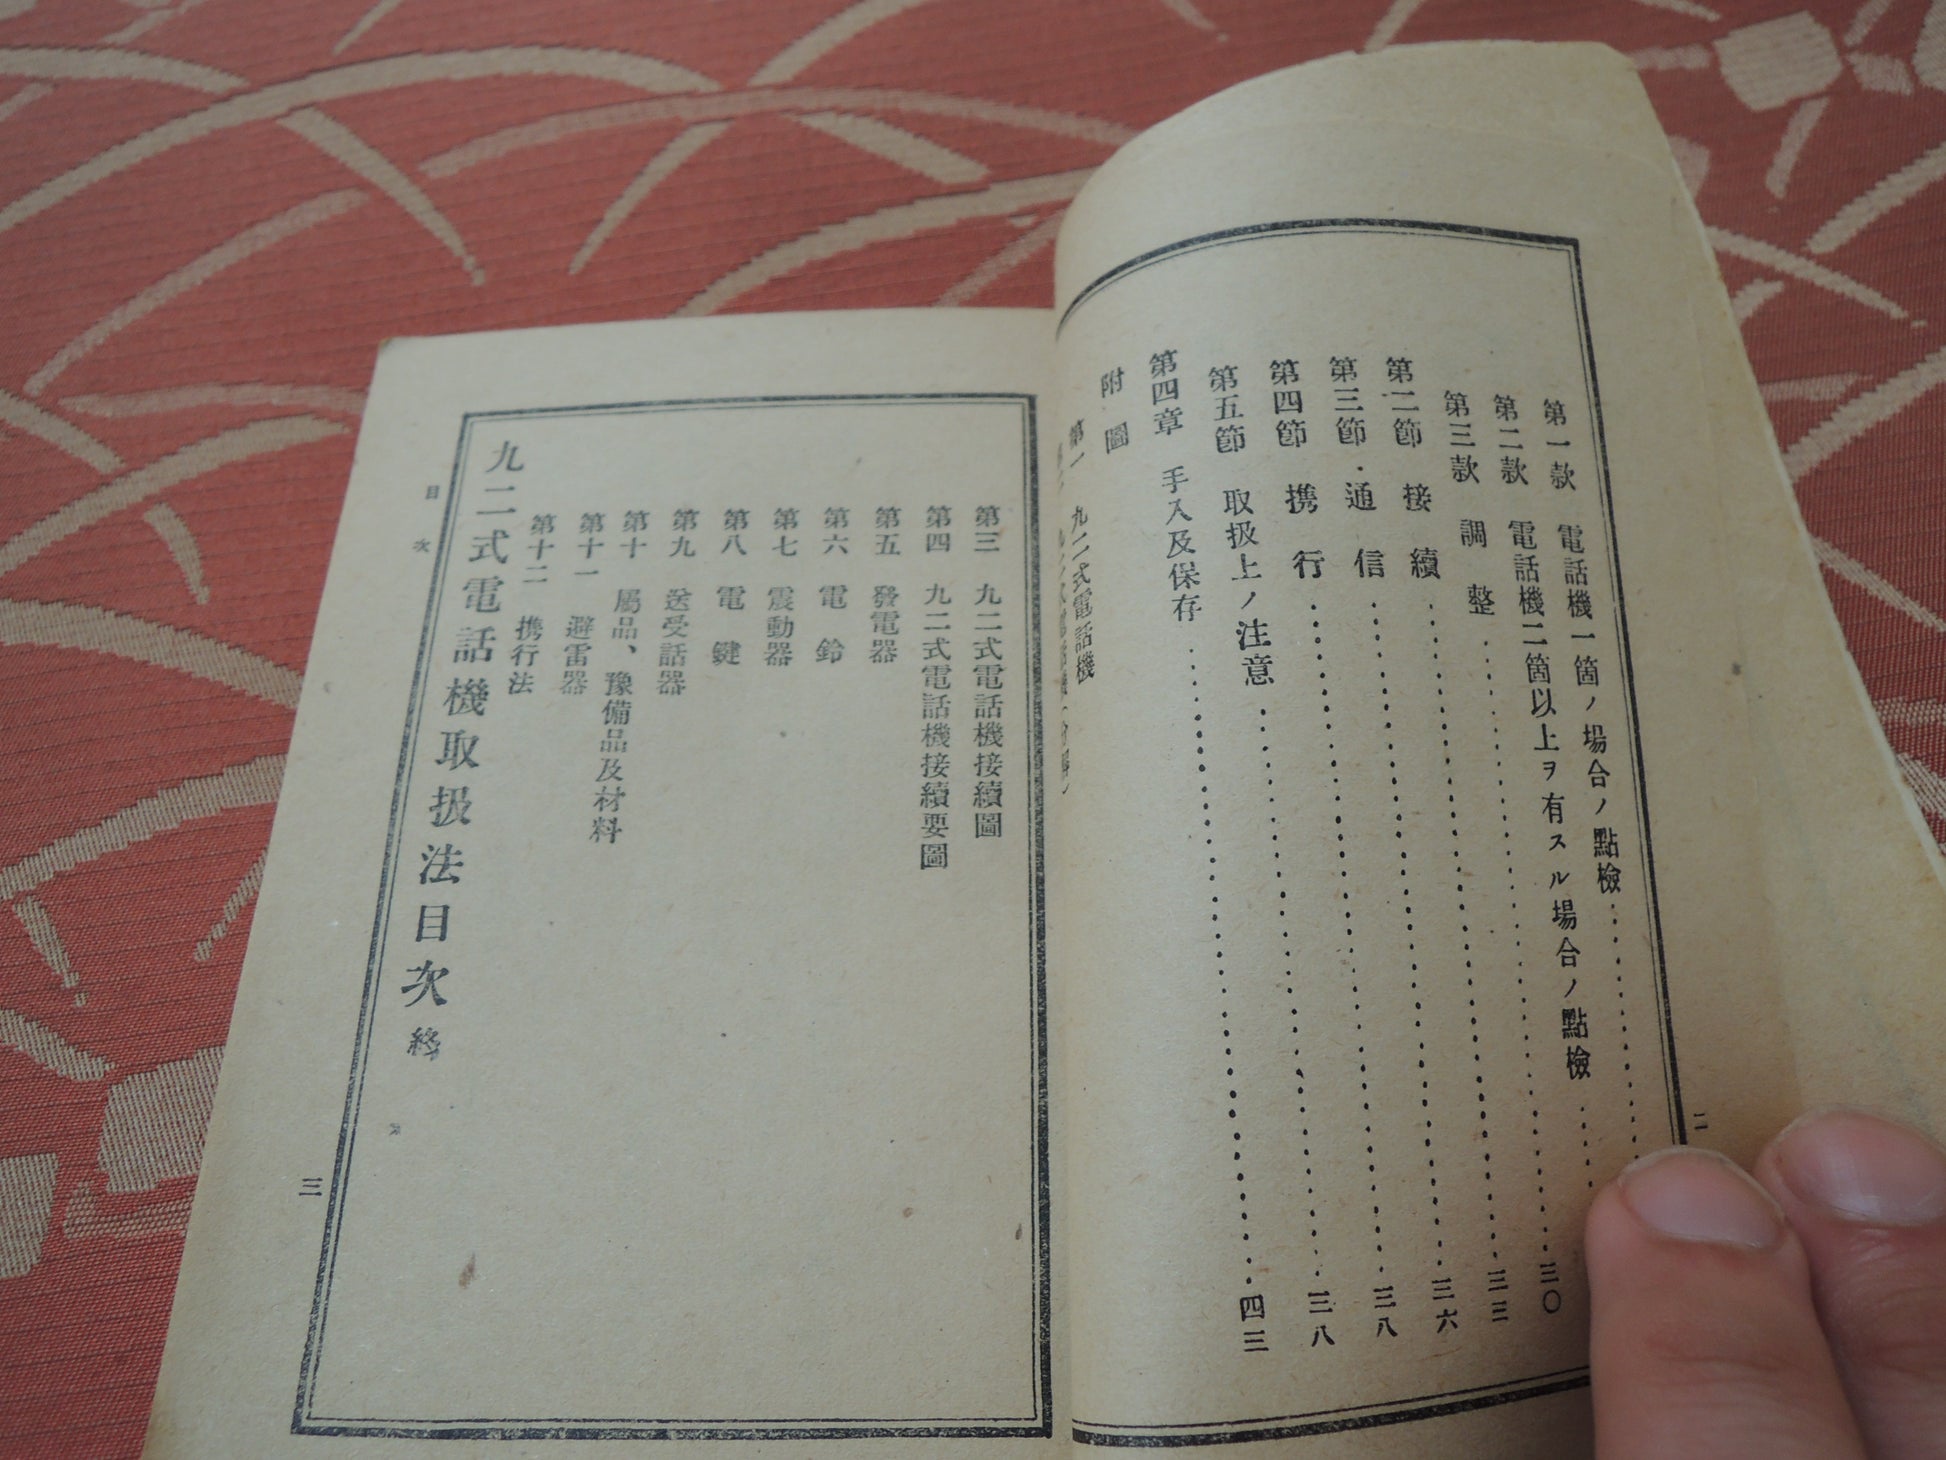 第一款 電話機一箇ノ場合ノ點檢
第二款 電話機二箇以上ヲ有スル場合ノ點檢
第三款 調整 三〇
第二節 接續 三三
第三節 通信 三六
第四節 携行 三八
第五節 取扱上ノ注意 三八
第四章 手入及保存 四三
附圖
第一 九二式電話機
二
第三 九二式電話機接續圖
第四 九二式電話機接續要圖
第五 發電器
第六 電鈴
第七 震動器
第八 電鍵
第九 送受話器
第十 屬品、豫備品及材料
第十一 避雷器
第十二 携行法
九二式電話機取扱法目次終
目次
三